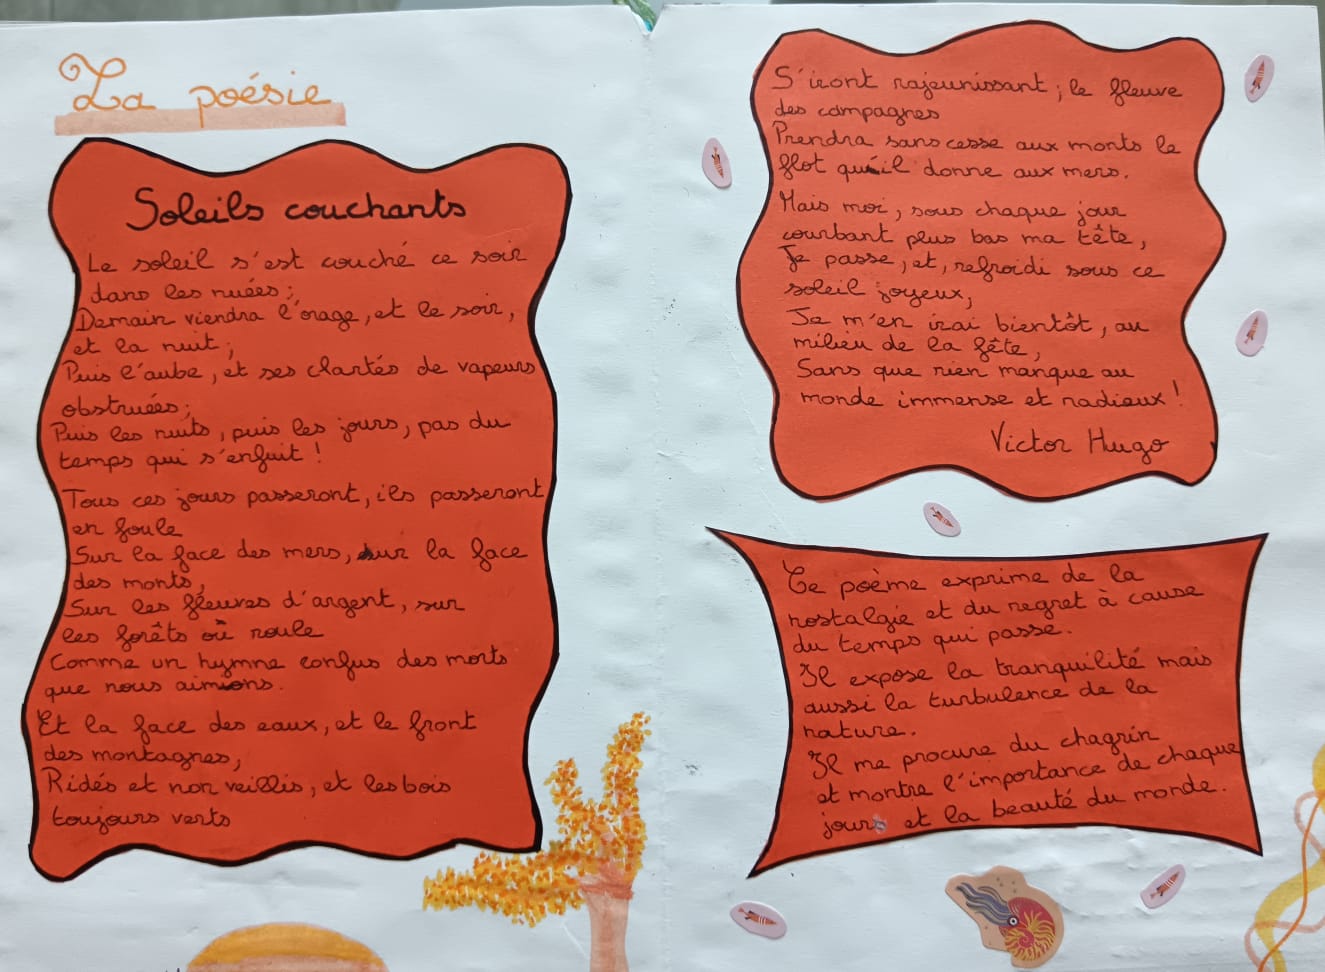 La poésie
Soleils couchants
Le soleil s'est couché ce soir
dans les nuées;
Demain viendra l'orage, et le soir,
et la nuit;
Puis l'aube, et ses clartés de vapeurs
obstruées;
Puis les nuits, puis les jours, pas du
temps qui s'enfuit!
Tous ces jours passeront, ils passeront
en foule
Sur la face des mers, sur la face
des monts,
Sur les fleuves d'argent, sur
les forêts où roule
Comme un hymne confus des morts
que nous aimons.
Et la face des eaux, et le front
des montagnes,
Ridés et non veillis, et les bois
toujours verts
S'iront rajeunissant; le fleuve
des campagnes
Prendra sans cesse aux monts le
flot qu'il donne aux mers.
Mais moi, sous chaque jour
courbant plus bas ma tête,
Je passe, et, refroidi sous ce
soleil joyeux,
Je m'en irai bientôt, au
milieu de la fête,
Sans que rien manque au
monde immense et radieux!
Victor Hugo
Ce poème exprime de la
nostalgie et du regret à cause
du temps qui passe.
Il expose la tranquilité mais
aussi la turbulence de la
nature.
Il me procure du chagrin
et montre l'importance de chaque
jours et la beauté du monde.